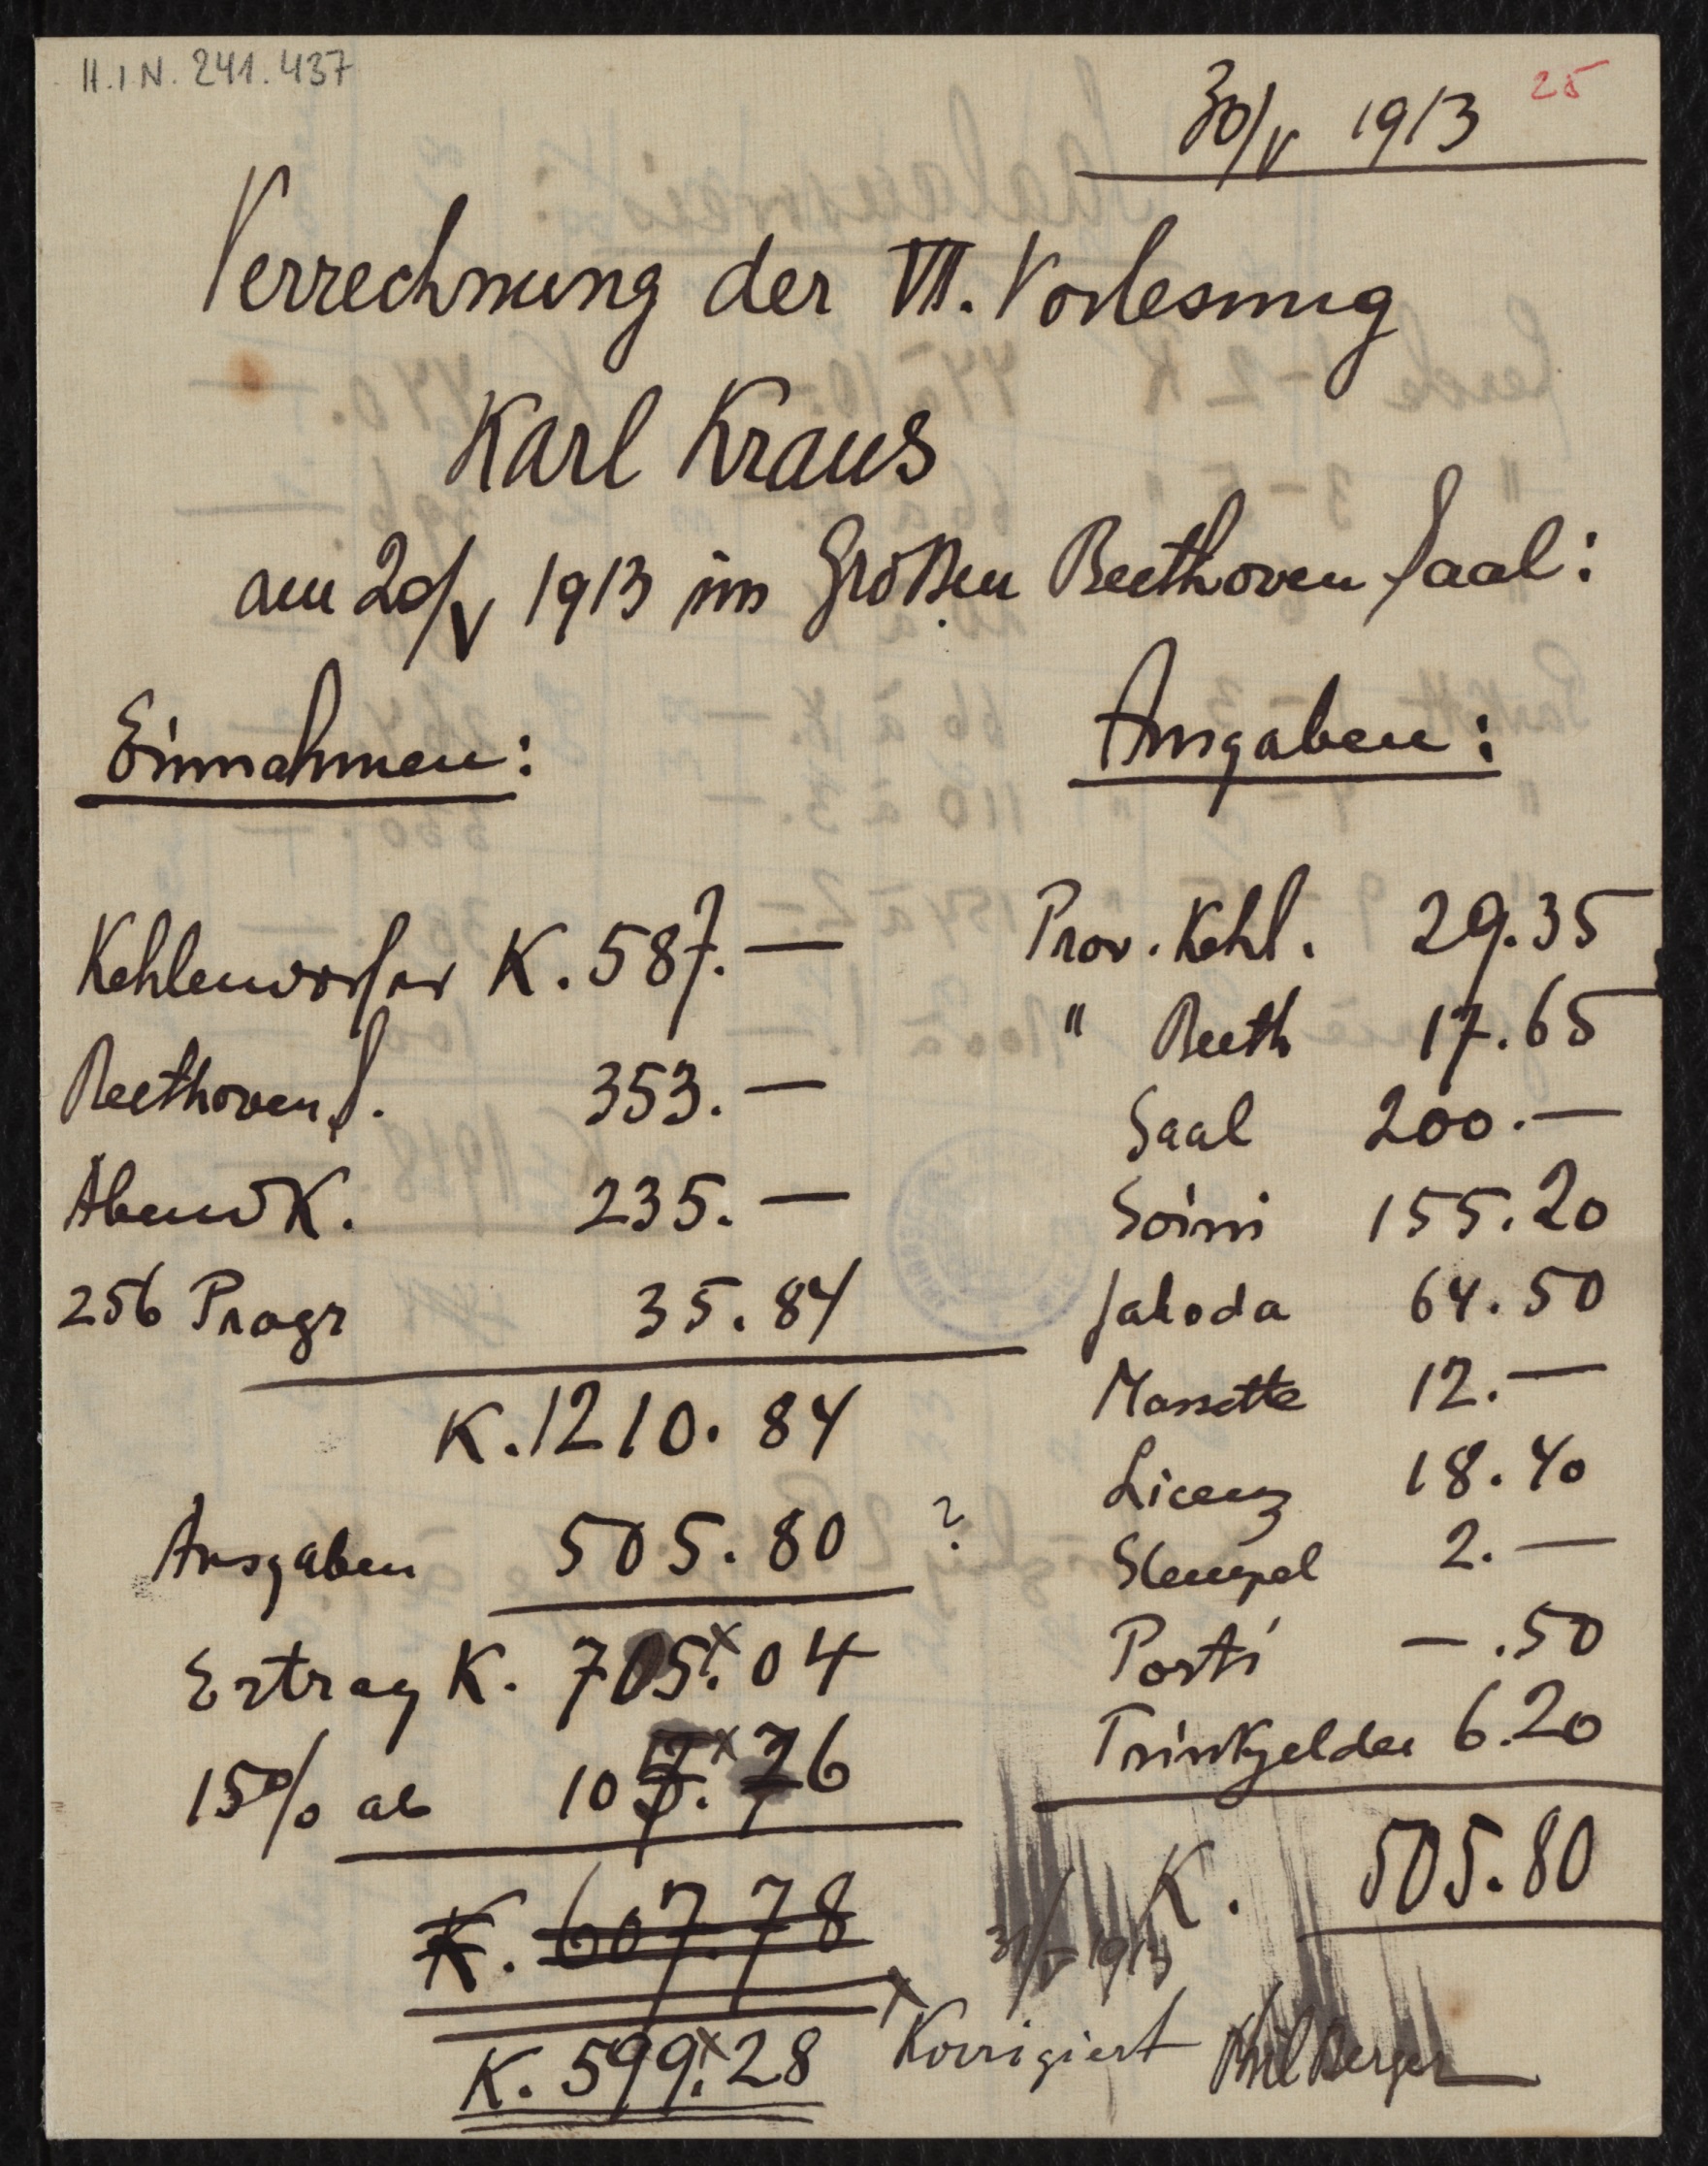 H.I.N. 241.437
25
30/V 1913
Verrechnung der VII. Vorlesung
Karl Kraus
am 20/V 1913 im Großen Beethoven Saal:
Einnahmen:
Kehlendorfer K. 587.—
Beethoven S. 353.—
Abend K. 235.—
256 Progr 35.84
K. 1210.84
Ausgaben 505.80 ?
Ertrag K. 705.× 04
15% ab 105.× 76
K. 607.78
K. 599.× 28
Ausgaben:
Prov. Kehl. 29.35
" Beeth 17.65
Saal 200.—
155.20
Jahoda 64.50
12.—
Licenz 18.40
Stempel 2.—
Porti —.50
Trinkgelder 6.20
K. 505.80
31/V 1913
× Korrigiert Phil Berger